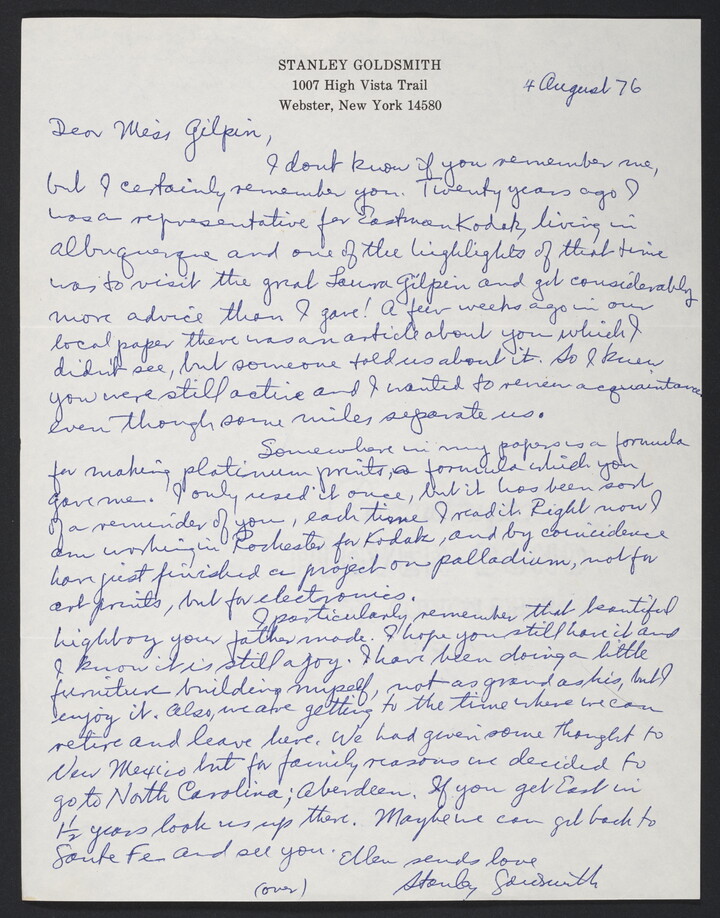 STANLEY GOLDSMITH
1007 High Vista Trail
Webster, New York 14580
4 August 76
Dear Miss Gilpin,
I dont know if you remember me,
but I certainly remember you. Twenty years ago I
was a representative for Eastman Kodak, living in
Albuquerque and one of the highlights of that time
was to visit the great Laura Gilpin and got considerably
more advice than I gave! A few weeks ago in our
local paper there was an article about you which I
didn't see, but someone told us about it. So I knew
you were still active and I wanted to renew acquaintance
even though some miles separate us.
Somewhere in my papers is a formula
for making platinum prints, a formula which you
gave me. I only used it once, but it has been sort
of a reminder of you, each time I read it. Right now I
am working in Rochester for Kodak, and by coincidence
have just finished a project on palladium, not for
art prints, but for electronics.
I particularly remember that beautiful
highboy your father made. I hope you still have it and
I know it is still a joy. I have been doing a little
furniture building myself, not as grand as his, but I
enjoy it. Also, we are getting to the time where we can
retire and leave here. We had given some thought to
New Mexico but for family reasons we decided to
go to North Carolina; Aberdeen. If you get East in
1½ years look us up there. Maybe we can get back to
Santa Fe and see you. Ellen sends love
(over) Stanley Goldsmith